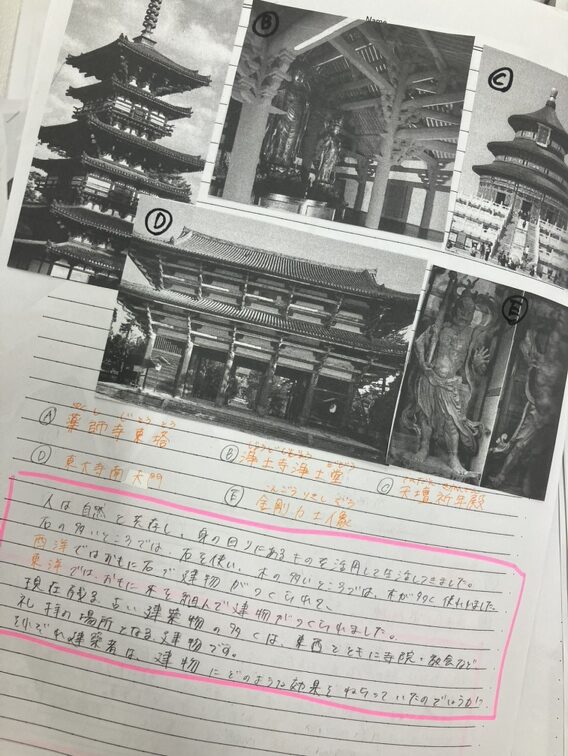 Name
B
C
D
E
やくしじとうとう
A 薬師寺東塔
じょうどじじょうどどう
B 浄土寺浄土堂
てんだんきねんでん
C 天壇祈年殿
D 東大寺南大門
こんごうりきしぞう
E 金剛力士像
人は自然と共存し、身の回りにあるものを活用して生活してきました。
石の多いところでは、石を使い、木の多いところでは、木が多く使われました
西洋ではおもに石で建物がつくられて、
東洋では、おもに木を組んで建物がつくられました。
現在残る古い建築物の多くは、東西ともに寺院・教会など
礼拝の場所となる建物です。
それぞれ建築者は、建物にどのような効果をねらっていたのでしょうか?